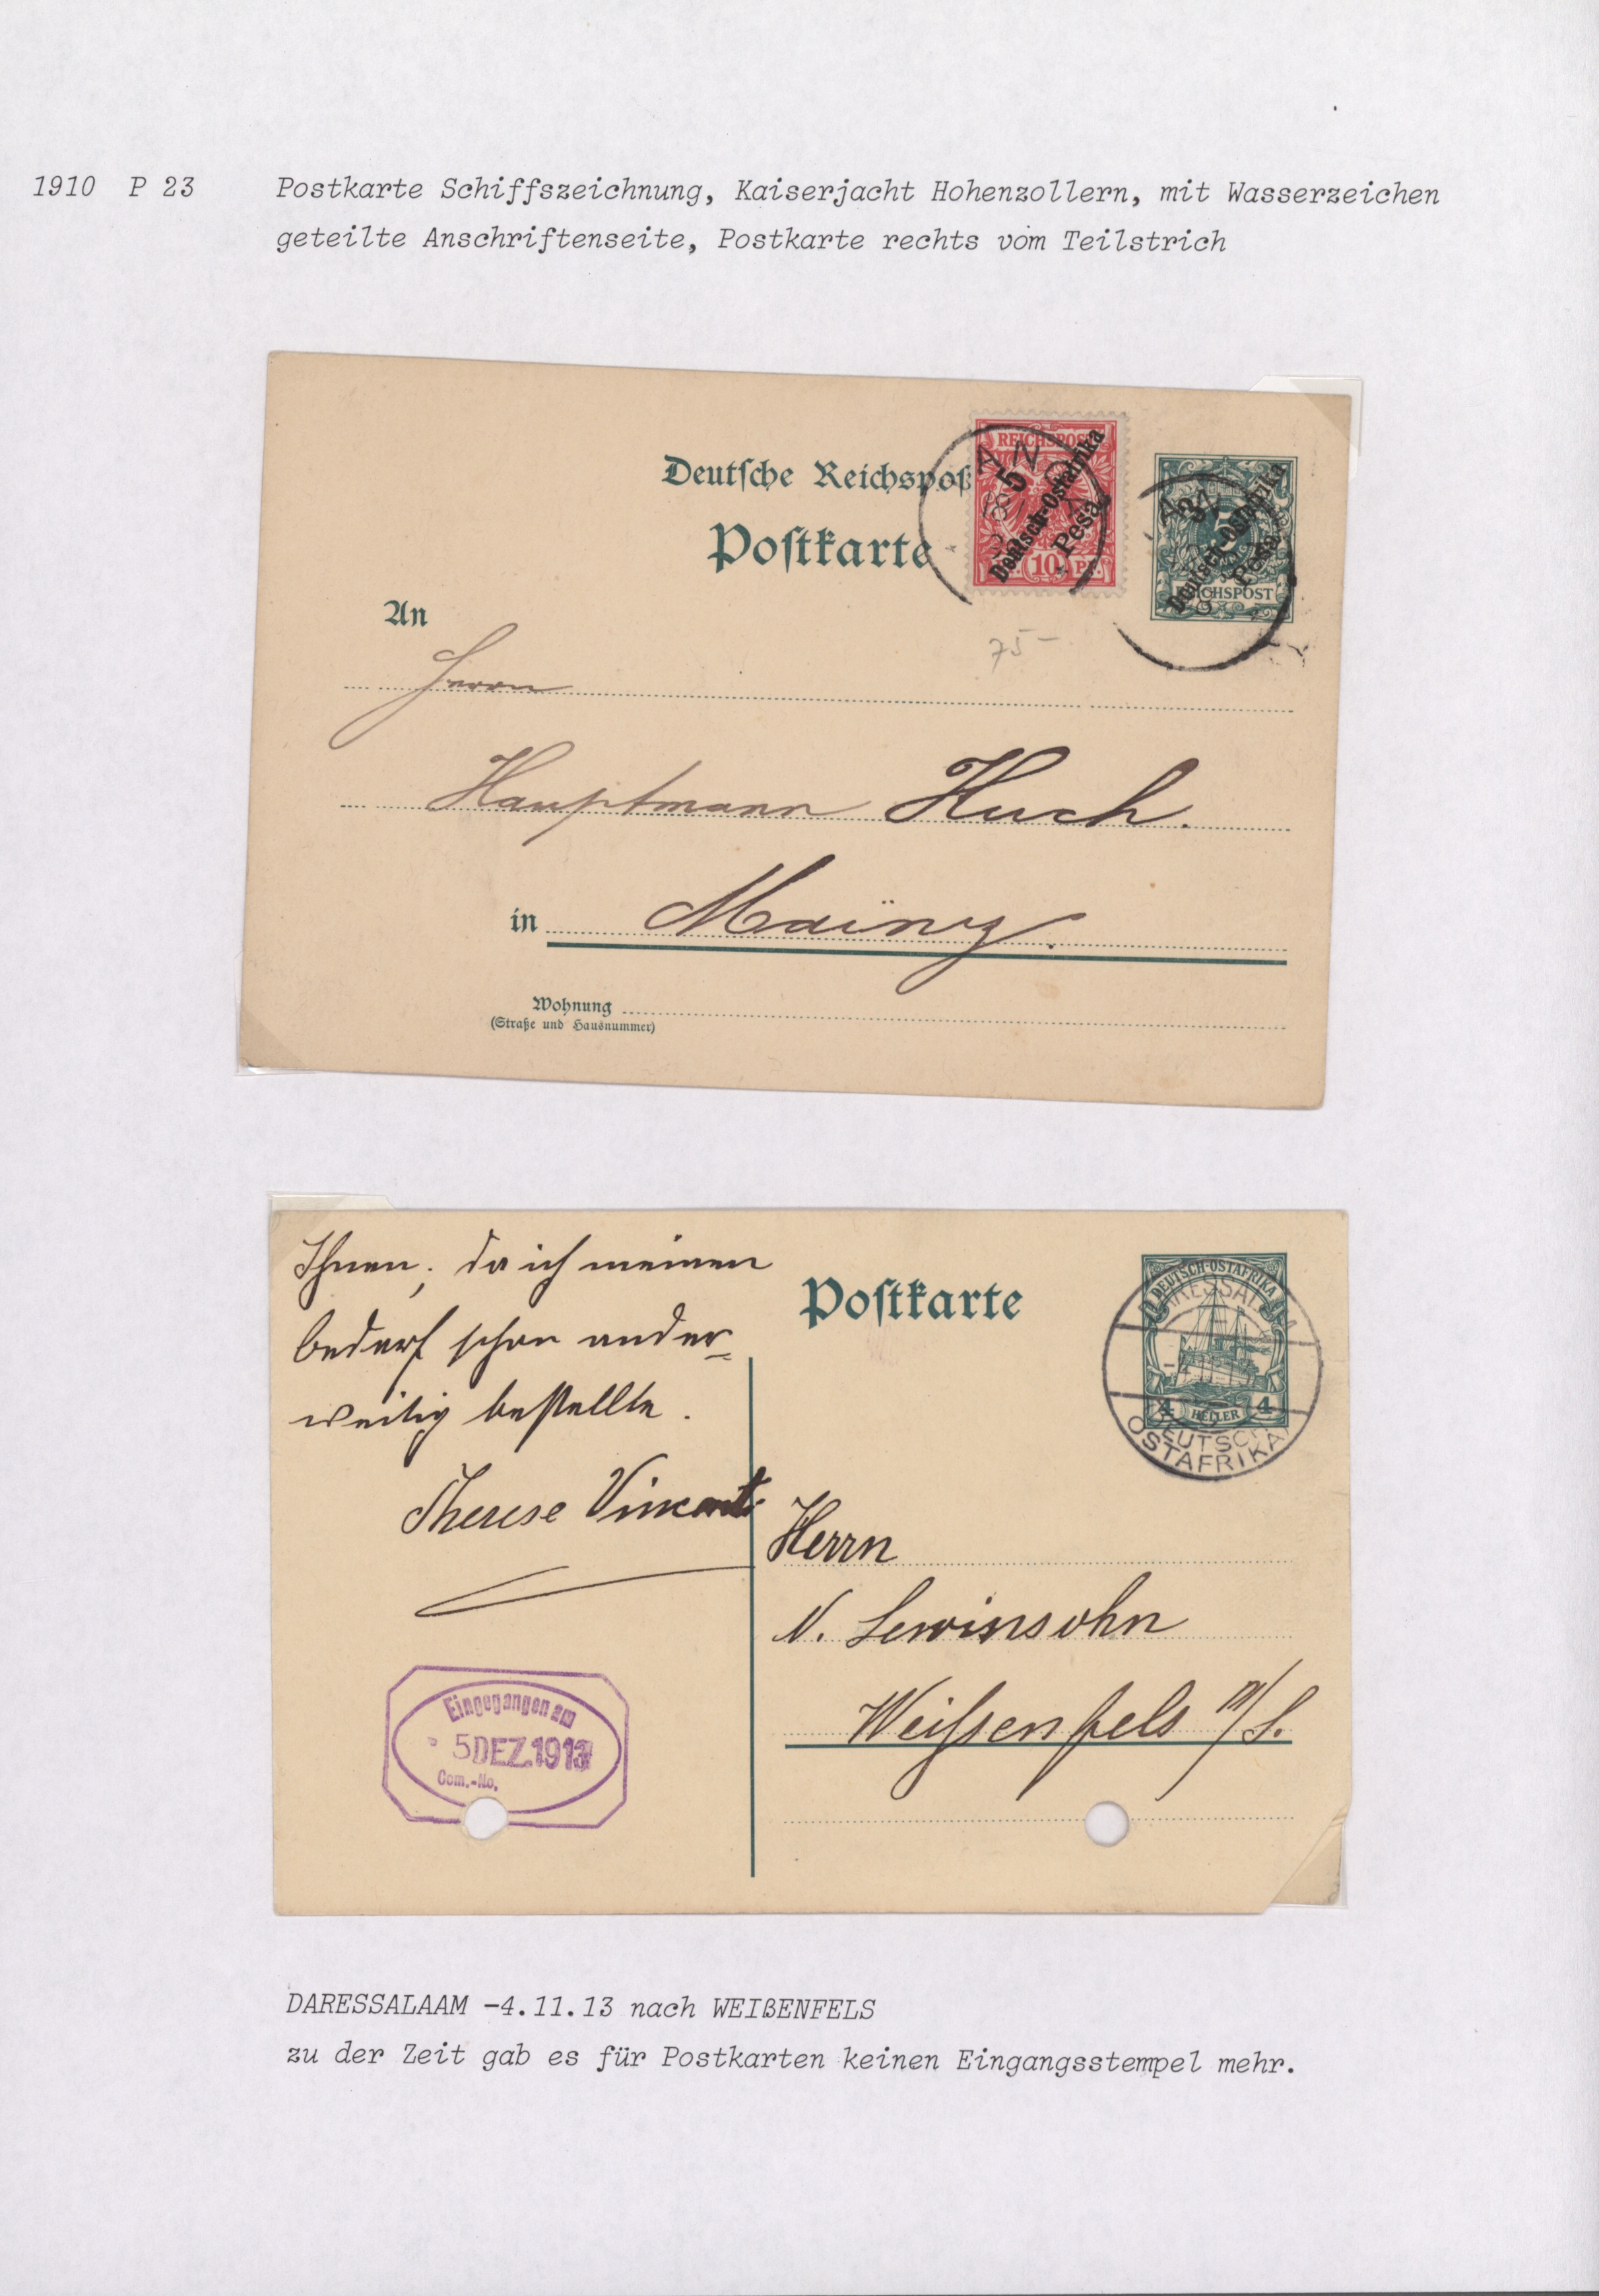 1910 P 23 Postkarte Schiffszeichnung, Kaiserjacht Hohenzollern, mit Wasserzeichen
geteilte Anschriftenseite, Postkarte rechts vom Teilstrich
Deutsche Reichspost
Postkarte
REICHSPOST
5
Deutsch-Ostafrika
Pesa
10 PF.
3
Deutsch-Ostafrika
Pesa
REICHSPOST
An
75-
Herrn
Hauptmann Huch.
in Mainz.
Wohnung
(Straße und Hausnummer)
Ihnen, da ich meinen
bedarf schon ander=
weitig bestellte.
Therese
Postkarte
DEUTSCH-OSTAFRIKA
4 HELLER 4
DARESSALAM
DEUTSCH
OSTAFRIKA
Herrn
N. Lewinsohn
Weißenfels a/S.
Eingegangen am
5 DEZ. 1913
Com.-No.
DARESSALAAM -4.11.13 nach WEIßENFELS
zu der Zeit gab es für Postkarten keinen Eingangsstempel mehr.